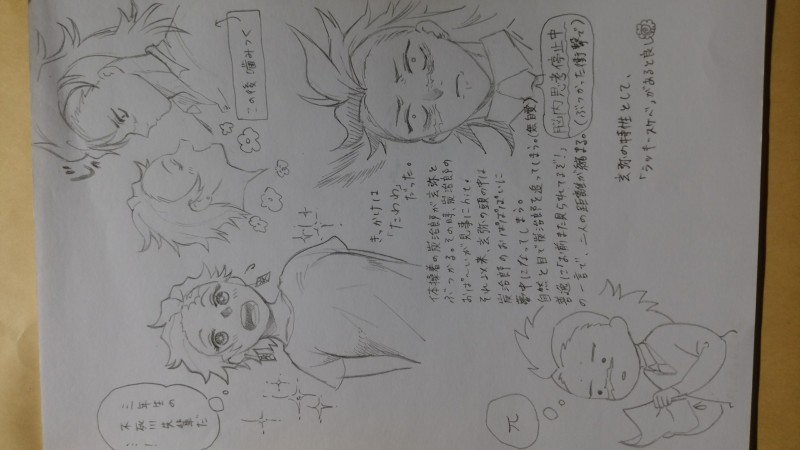 この後噛みつく
きっかけは
「たわわ」
だった。
体操着の炭治郎が玄弥と
ぶつかる。その時、炭治郎の
おぱーいが見事にhit。
それ以来、玄弥の頭の中は
炭治郎のおぱぱぱぱいに
夢中になってしまう。
自然と目で炭治郎を追ってしまう。(無自覚)
善逸に「お前また見られてるぞ!」
の一言で、二人の距離が縮まる。
脳内思考停止中
(ぶつかった衝撃で)
玄弥の特性として、
「ラッキースケベ」があると良し
三年生の
不死川先輩だ
…!
π